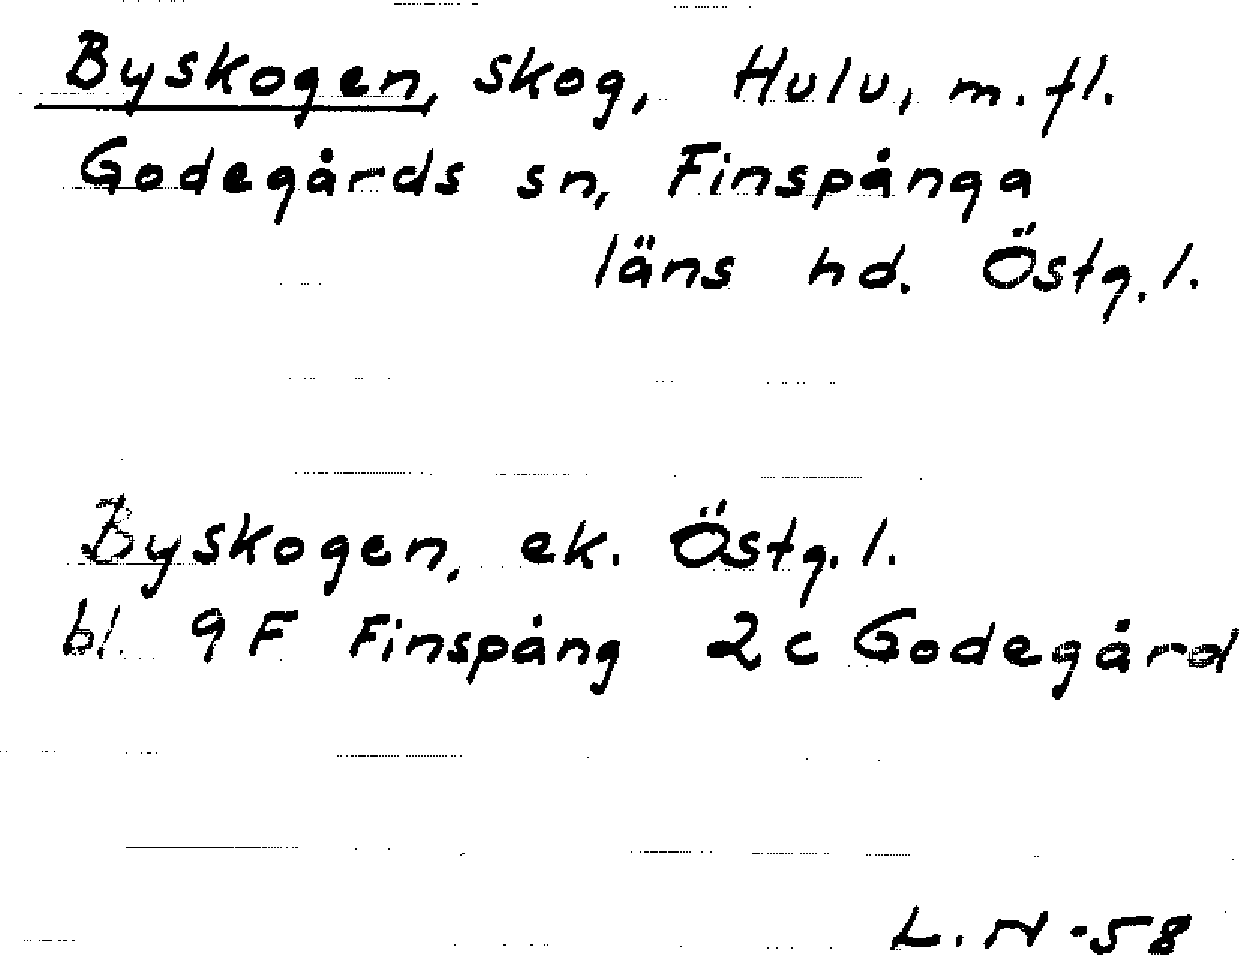 Byskogen, skog, Hulu, m.fl.
Godegårds sn, Finspånga
läns hd. Östg.l.
Byskogen, ek. Östg.l.
bl. 9F Finspång 2c Godegård
L.N-58